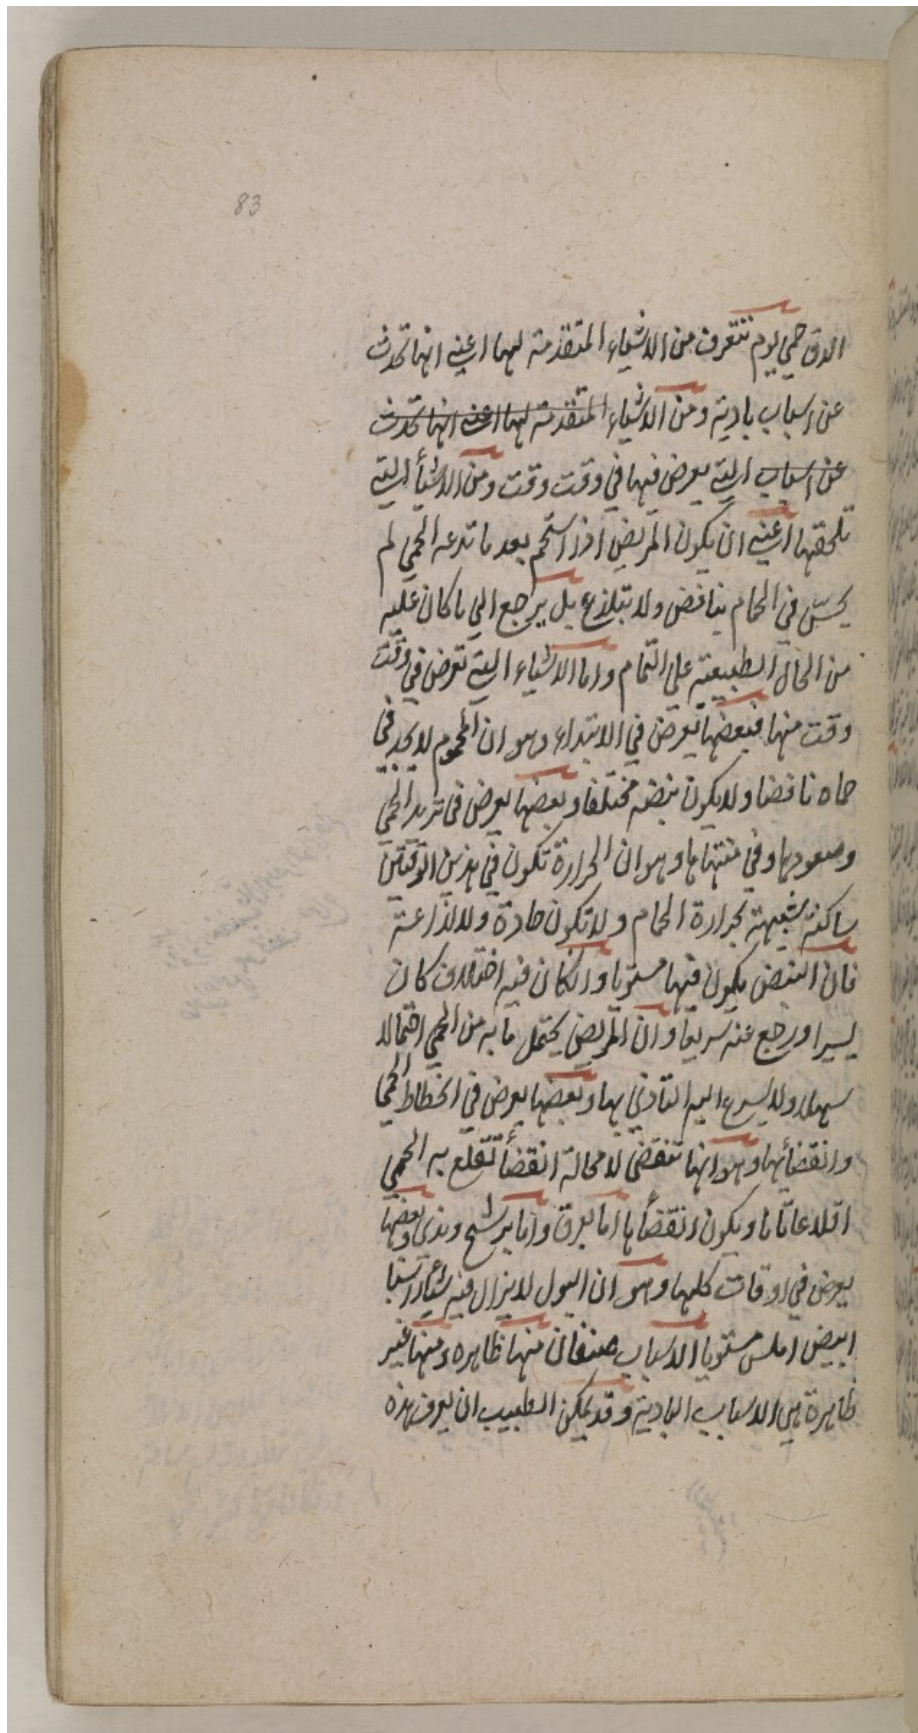 83
الدق حمى يوم تتعرف من الاشياء المتقدمة لها اعني انها تحدث
عن اسباب بادية ومن الاشياء المتقدمة لها اعني انها تحدث
عن اسباب التي يعرض فيها في وقت وقت ومن الاشيأ التي
تلحقها اعني ان يكون المريض اذا استحم بعد ما تدعه الحمى لم
يحسّ في الحمام بنافض ولا بتلذع بل يرجع الى ما كان عليه
من الحال الطبيعية على التمام واما الاشياء التي تعرض في وقت
وقت منها فبعضها يعرض في الابتداء وهو ان المحموم لا يجد في
حماه نافضا ولا يكون نبضه مختلفا وبعضها يعرض في تزيد الحمى
وصعودها وفي منتهاها وهو ان الحرارة تكون في هذين الوقتين
ساكنة شبيهة بحرارة الحمام ولا تكون حادة ولا لذاعة
فان النبض يكون فيها مستويا وان كان فيه اختلاف كان
يسيرا ورجع عنه سريعا وان المريض يحتمل ما به من الحمى احتمالا
سهلا ولا يسرع اليه التاذي بها وبعضها يعرض في انحطاط الحمى
وانقضائها وهو انها تنقضي لا محالة انقضأ تقلع به الحمى
اقلاعا تاما ويكون انقضاؤها اما بعرق واما برشح وندى وبعضها
يعرض في اوقات كلها وهو ان البول لا يزال فيه شيئا راسبا
ابيض املس مستويا الاسباب صنفان منها ظاهره ومنها غير
ظاهرة هي الاسباب البادية وقد يمكن الطبيب ان يعرف هذه